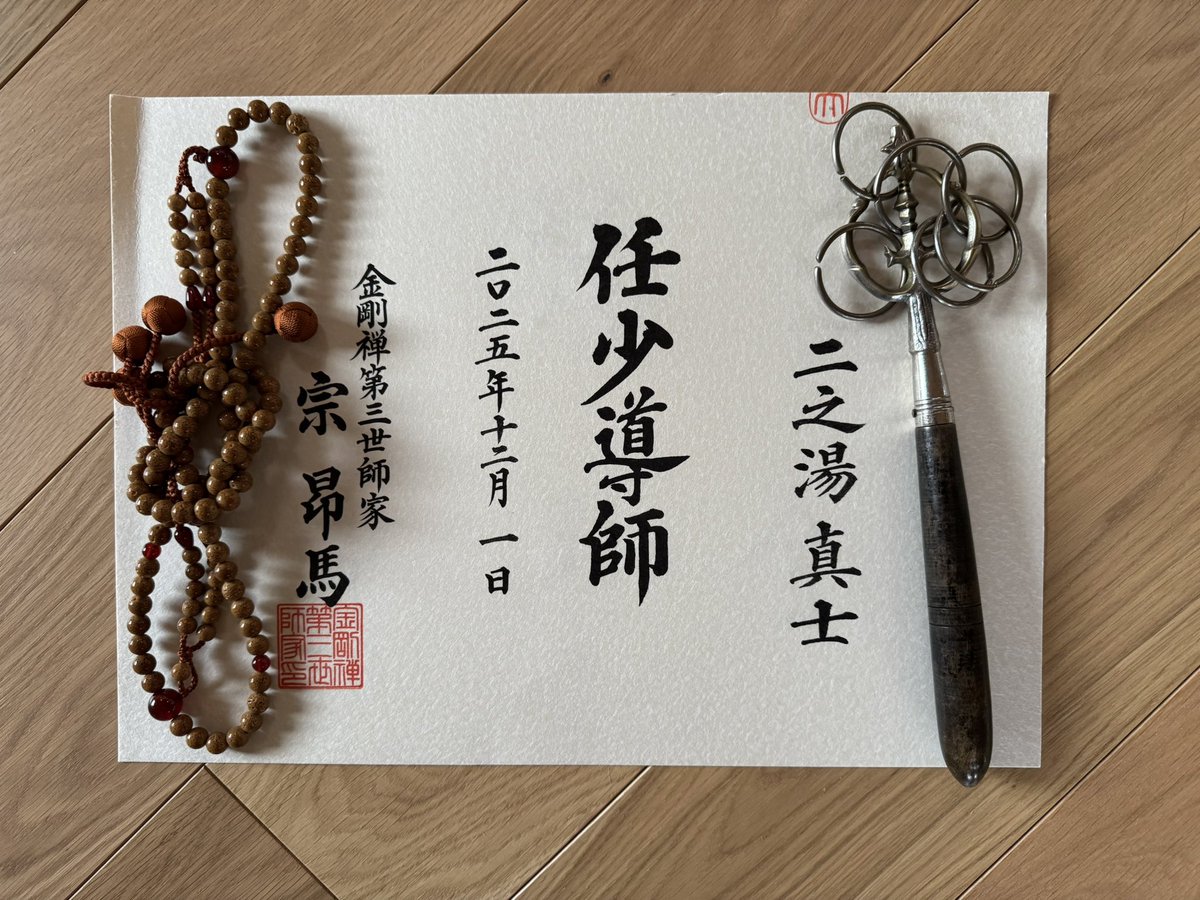 二之湯 真士
任少導師
二〇二五年十二月一日
金剛禅第三世師家
宗 昂馬
金剛禅
第三世
師家印